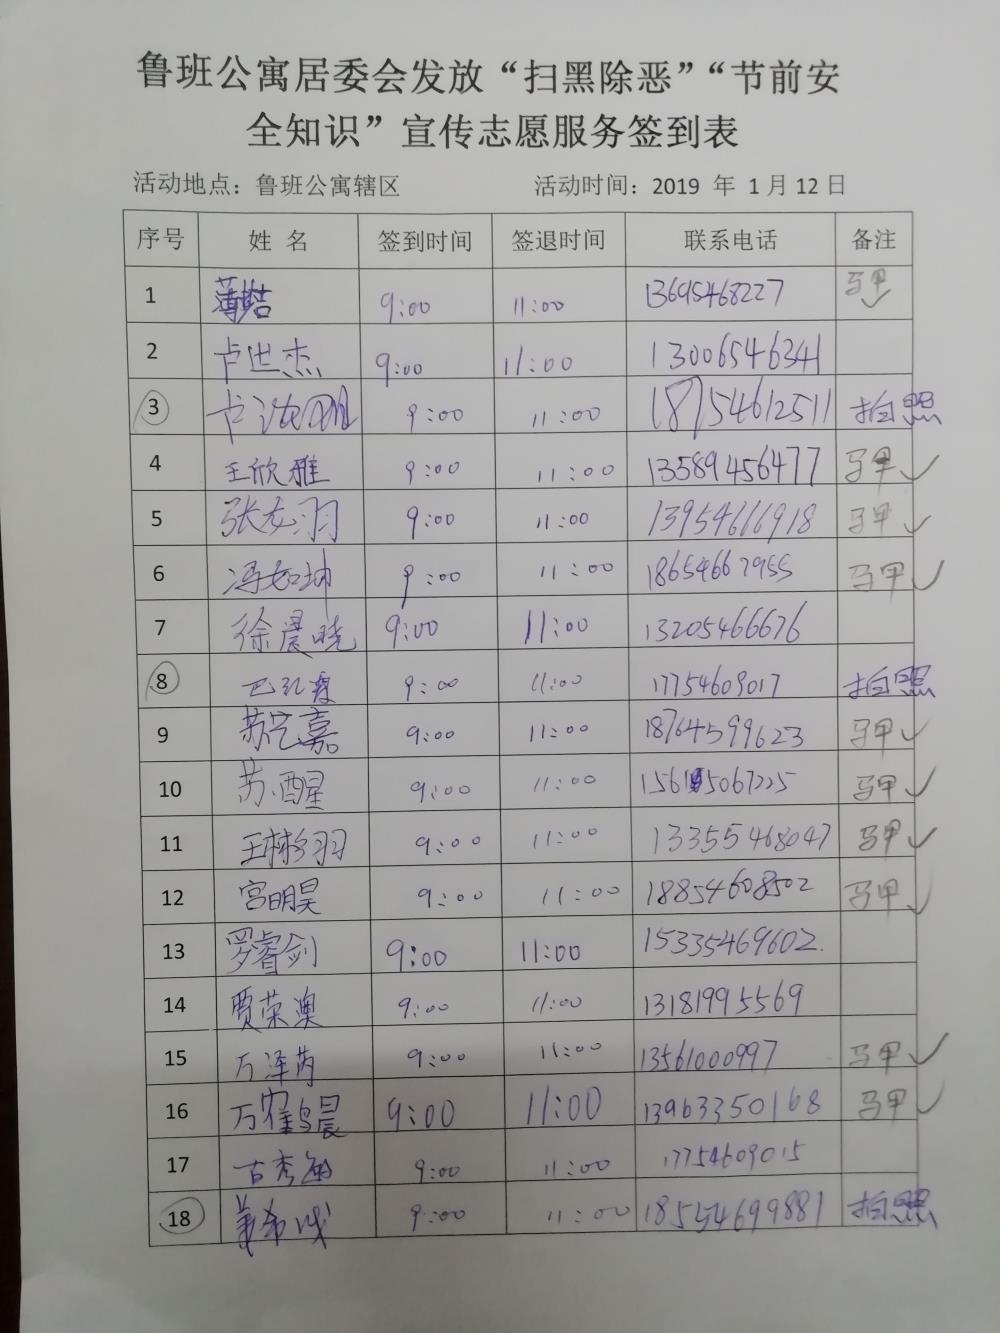 鲁班公寓居委会发放“扫黑除恶”“节前安
全知识”宣传志愿服务签到表
活动地点：鲁班公寓辖区 活动时间：2019 年 1 月 12 日
序号 姓 名 签到时间 签退时间 联系电话 备注
1 9:00 11:00 13695468227 马甲✓
2 卢世杰 9:00 11:00 13006546341
3 9:00 11:00 18754612511 拍照
4 王欣雅 9:00 11:00 13589456477 马甲✓
5 张友羽 9:00 11:00 13954611918 马甲✓
6 冯如坤 9:00 11:00 18654667955 马甲✓
7 徐晨晓 9:00 11:00 13205466676
8 9:00 11:00 17754609017 拍照
9 苏定嘉 9:00 11:00 18764599623 马甲✓
10 苏醒 9:00 11:00 15615067225 马甲✓
11 王彬羽 9:00 11:00 13355468047 马甲✓
12 宫明昊 9:00 11:00 18854608502 马甲✓
13 罗睿剑 9:00 11:00 15335469602.
14 贾荣澳 9:00 11:00 13181995569
15 万泽芮 9:00 11:00 13561000997 马甲✓
16 万鹤晨 9:00 11:00 13963350168 马甲✓
17 古秀 9:00 11:00 17754609015
18 9:00 11:00 18554699881 拍照